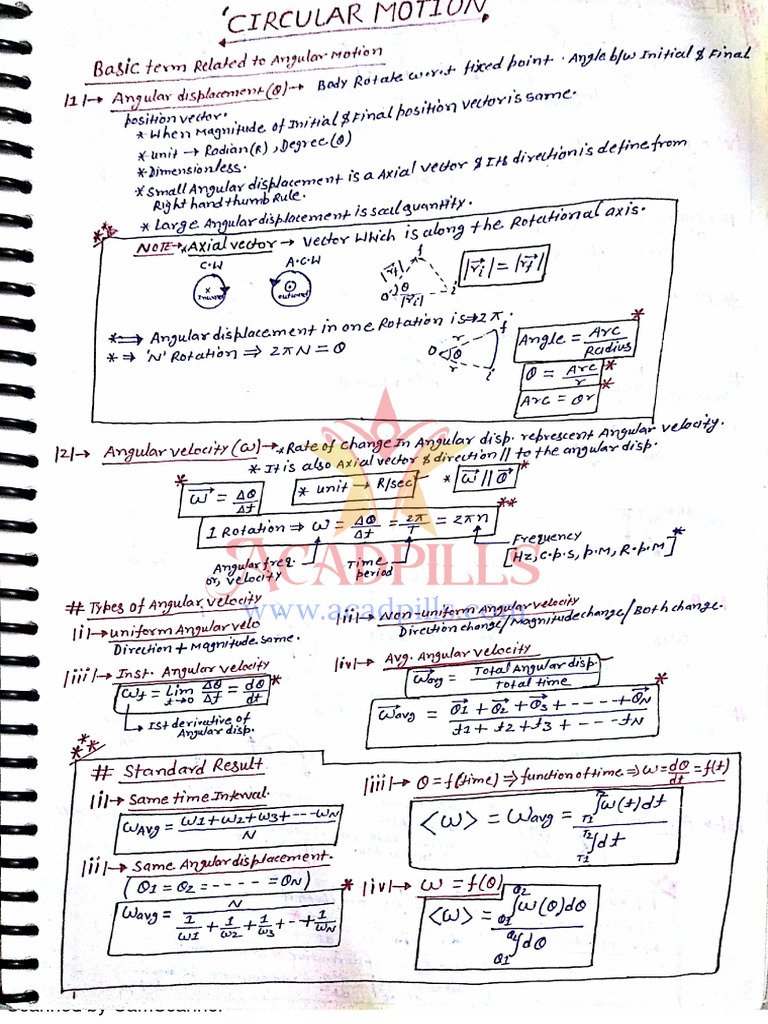 'CIRCULAR MOTION'
Basic term Related to Angular Motion
|1|→ Angular displacement(θ)→ Body Rotate w.r.t fixed point. Angle b/w Initial & Final
position vector.
* When Magnitude of Initial & Final position vector is same.
* unit → Radian(R), Degree(θ)
* Dimensionless.
* Small Angular displacement is a Axial vector & Its direction is define from
Right hand thumb Rule.
* Large Angular displacement is scal quantity.
NOTE→ * Axial vector → Vector Which is along the Rotational axis.
C.W A.C.W
Inward outward
|r⃗f| f O θ |r⃗i| i
|r⃗i| = |r⃗f|
* ⇒ Angular displacement in one Rotation is ⇒ 2π.
* ⇒ 'N' Rotation ⇒ 2πN = θ
O θ r r f i
Angle = Arc/Radius
θ = Arc/r
Arc = θr
|2|→ Angular velocity (ω)→ * Rate of change In Angular disp. represcent Angular velocity.
* It is also Axial vector & direction // to the angular disp.
ω⃗ = Δθ/Δt
* unit → R/sec
* ω⃗ || θ⃗
1 Rotation ⇒ ω = Δθ/Δt = 2π/T = 2πn
Angular freq. or, velocity
Time period
Frequency
[Hz, C.p.s, p.M, R.p.M]
ACADPILLS
www.acadpills.com
# Types of Angular velocity
|i|→ uniform Angular velo
Direction + Magnitude same.
|ii|→ Non-uniform Angular velocity
Direction change/Magnitude change/Both change.
|iii|→ Inst. Angular velocity
ω⃗t = Lim t→0 Δθ/Δt = dθ/dt
→ Ist derivative of
Angular disp.
|iv|→ Avg. Angular velocity
ω⃗avg = Total Angular disp./Total time
ω⃗avg = θ⃗1 + θ⃗2 + θ⃗3 + ---- + θ⃗N / t1 + t2 + t3 + --- - tN
# Standard Result
|i|→ Same time Interval.
ωAvg = ω1+ω2+ω3+---ωN / N
|ii|→ Same Angular displacement.
(θ1 = θ2 = ----- = θN)
ωavg = N / 1/ω1 + 1/ω2 + 1/ω3 + -- + 1/ωN
|iii|→ θ = f(time) ⇒ function of time ⇒ ω = dθ/dt = f(t)
<ω> = ωavg = T1∫T2 ω(t)dt / T1∫T2 dt
|iv|→ ω = f(θ)
<ω> = θ1∫θ2 ω(θ)dθ / θ1∫θ2 dθ
Scanned by CamScanner